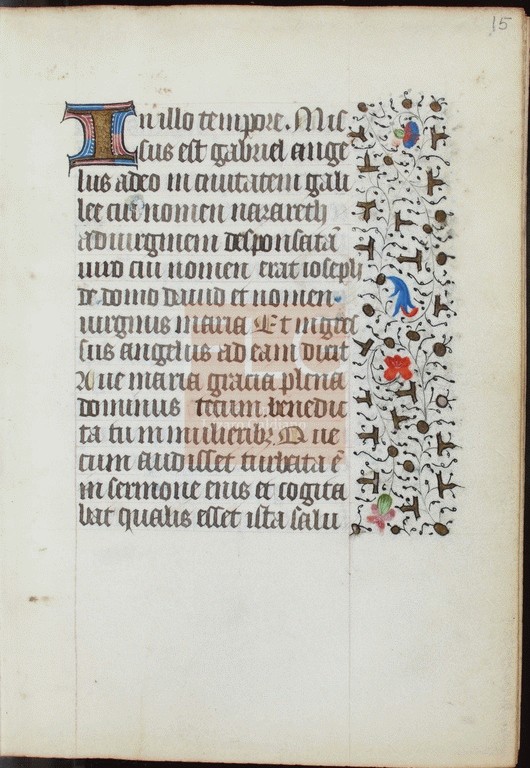 15
In illo tempore. Mis
sus est gabriel ange
lus adeo in ciuitatem gali
lee cui nomen nazareth
aduirginem desponsatā
uiro cui nomen erat ioseph
de domo dauid et nomen
uirginis maria Et ingres
sus angelus ad eam dixit
Aue maria gracia plena
dominus tecum benedic
ta tu in mulieribꝫ Que
cum audisset turbata ē
in sermone eius et cogita
bat qualis esset ista salu